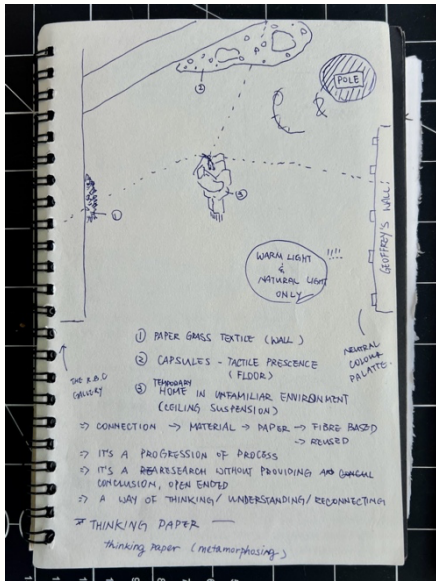 ②
POLE
①
③
GEOFFREY'S WALL!
WARM LIGHT
&
NATURAL LIGHT
ONLY
NEUTRAL
COLOUR
PALATTE.
THE
GALLERY
① PAPER GRASS TEXTILE (WALL)
② CAPSULES - TACTILE PRESCENCE
(FLOOR)
③ TEMPORARY HOME IN UNFAMILIAR ENVIRONMENT
(CEILING SUSPENSION)
⇒ CONNECTION → MATERIAL → PAPER → FIBRE BASED
→ REUSED
⇒ IT'S A PROGRESSION OF PROCESS
⇒ IT'S A RESEARCH WITHOUT PROVIDING
CONCLUSION, OPEN ENDED
⇒ A WAY OF THINKING/ UNDERSTANDING/ RECONNECTING
THINKING PAPER —
thinking paper (metamorphosing)